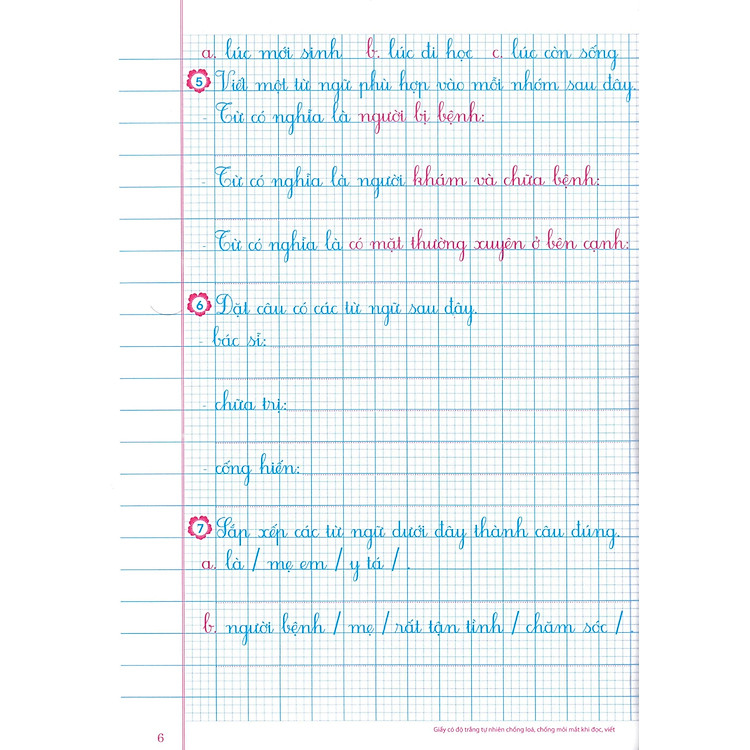 a. lúc mới sinh b. lúc đi học c. lúc còn sống
5 Viết một từ ngữ phù hợp vào mỗi nhóm sau đây.
- Từ có nghĩa là người bị bệnh:
- Từ có nghĩa là người khám và chữa bệnh:
- Từ có nghĩa là có mặt thường xuyên ở bên cạnh:
6 Đặt câu có các từ ngữ sau đây.
- bác sĩ:
- chữa trị:
- cống hiến:
7 Sắp xếp các từ ngữ dưới đây thành câu đúng.
a. là / mẹ em / y tá / .
b. người bệnh / mẹ / rất tận tình / chăm sóc / .
Giấy có độ trắng tự nhiên chống loá, chống mỏi mắt khi đọc, viết
6